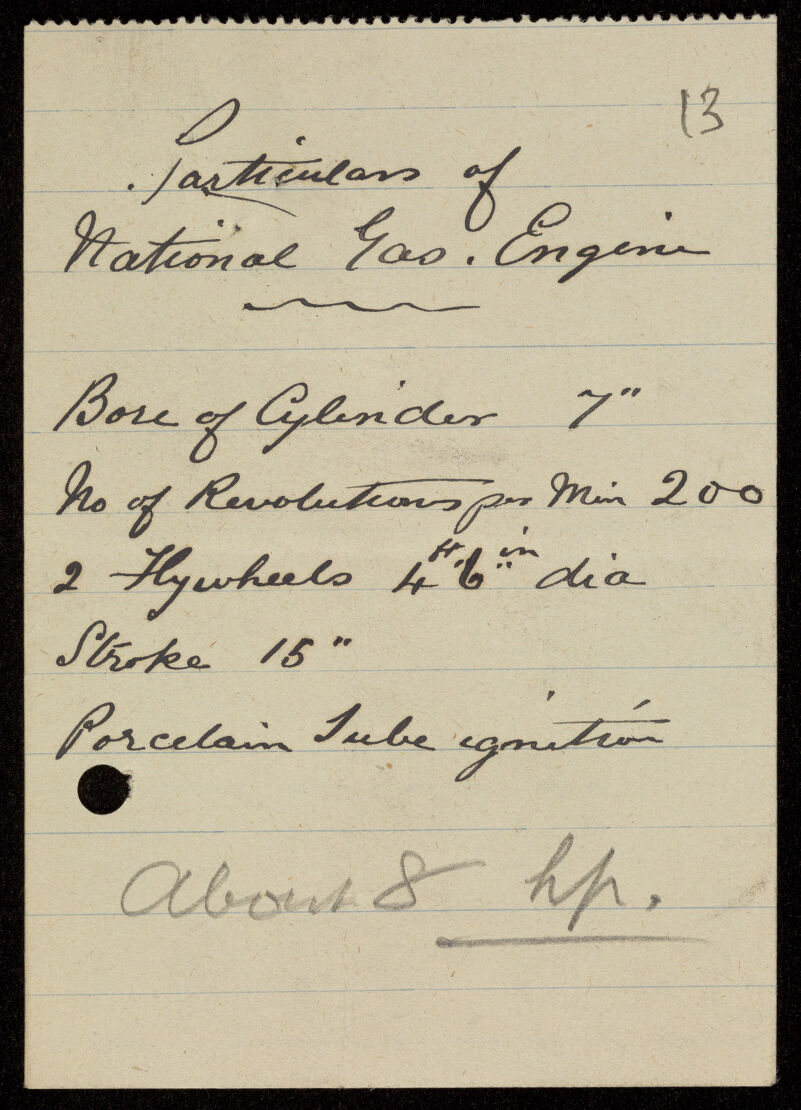 13
Particulars of
National Gas. Engine
Bore of Cylinder 7"
No of Revolutions per Min 200
2 Flywheels 4ft 6in dia
Stroke 15"
Porcelain Tube ignition
About 8 hp.